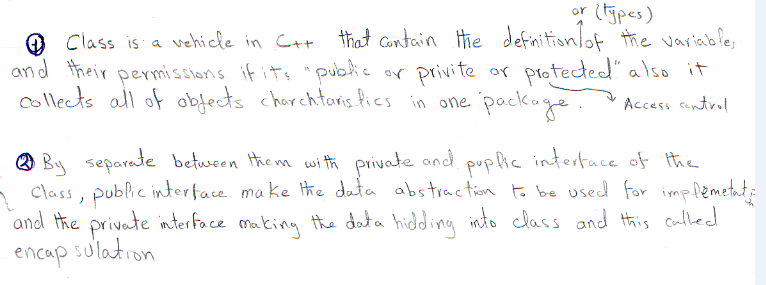 or (types)
① Class is a vehicle in C++ that contain the definition/of the variables
and their permissions if its "public or privite or protected" also it
collects all of objects charchtaristics in one package. Access control
② By separate between them with private and puplic interface of the
class, public interface make the data abstraction to be used for implemetation
and the private interface making the data hidding into class and this called
encapsulation